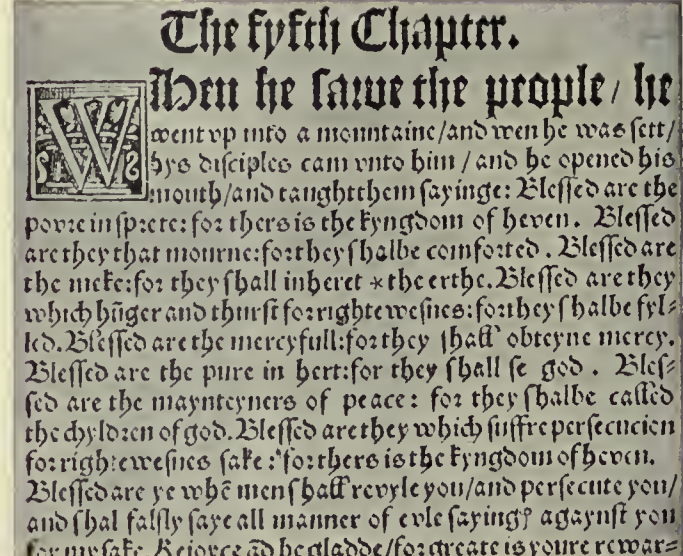 The fyfth Chapter.
When he sawe the people / he
went vp into a mountaine/and wen he was sett/
hys disciples cam vnto him / and he opened his
mouth/and taught them sayinge: Blessed are the
povre in sprete: for thers is the kyngdom of heven. Blessed
are they that mourne: for they shalbe comforted. Blessed are
the meke: for they shall inheret * the erthe. Blessed are they
which hūger and thurst for rightewesnes: for they shalbe fyl⸗
led. Blessed are the mercyfull: for they shall obteyne mercy.
Blessed are the pure in hert: for they shall se god. Bles⸗
sed are the maynteyners of peace: for they shalbe called
the chyldren of god. Blessed are they which suffre persecucion
for rightewesnes sake: for thers is the kyngdom of heven.
Blessed are ye whē men shall revyle you/and persecute you/
and shal falsly saye all manner of evle sayingꝭ agaynst you
for my sake. Reioyce ād be gladde/for greate is youre rewar⸗